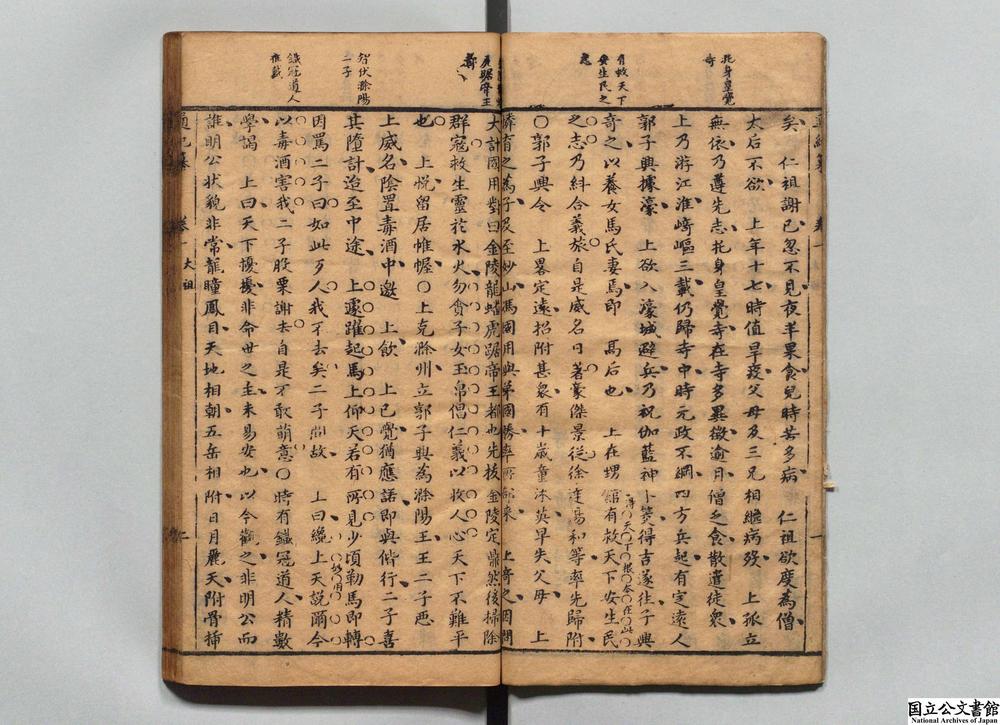 托身皇覺
寺
有救天下
安生民之
志
矣　仁祖謝已忽不見夜半果食兒時苦多病　仁祖欲度為僧
太后不欲　上年十七時值旱疫父母及三兄相繼病歿　上孤立
無依乃遵先志托身皇覺寺在寺多異徵逾月僧乏食散遣徒衆
上乃游江淮崎嶇三載仍歸寺中時元政不綱四方兵起有定遠人
郭子興據濠　上欲入濠城避兵乃祝伽藍神卜筊得吉遂往子興
奇之以養女馬氏妻焉即　高后也　上在甥館有救天下安生民
之志乃糾合義旅自是威名日著豪傑景從徐達湯和等率先歸附
〇郭子興令　上畧定遠招附甚衆有十歲童沐英早失父母　上
憐育之為子及至妙山馮國用與弟國勝率所部來　上奇之因問
虎踞帝王
都
智伏滁陽
二子
鐵冠道人
推戴
大計國用對曰金陵龍蟠虎踞帝王都也先拔金陵定鼎然後掃除
群寇救生靈於水火勿貪子女玉帛倡仁義以收人心天下不難平
也　上悅留居帷幄〇上克滁州立郭子興為滁陽王王二子忌
上威名陰置毒酒中邀　上飲　上已覺猶應諾即與偕行二子喜
其墮計迨至中途　上遽躍起馬上仰天若有所見少頃勒馬即轉
因罵二子曰如此歹人我不去矣二子問故　上曰纔上天說爾今
以毒酒害我二子股栗謝去自是不敢萌意〇時有鐵冠道人精數
學謁　上曰天下擾擾非命世之主未易安也以今觀之非明公而
誰明公狀貌非常龍瞳鳳目天地相朝五岳相附日月麗天附骨插
通紀纂　卷一　太祖　一
国立公文書館
National Archives of Japan